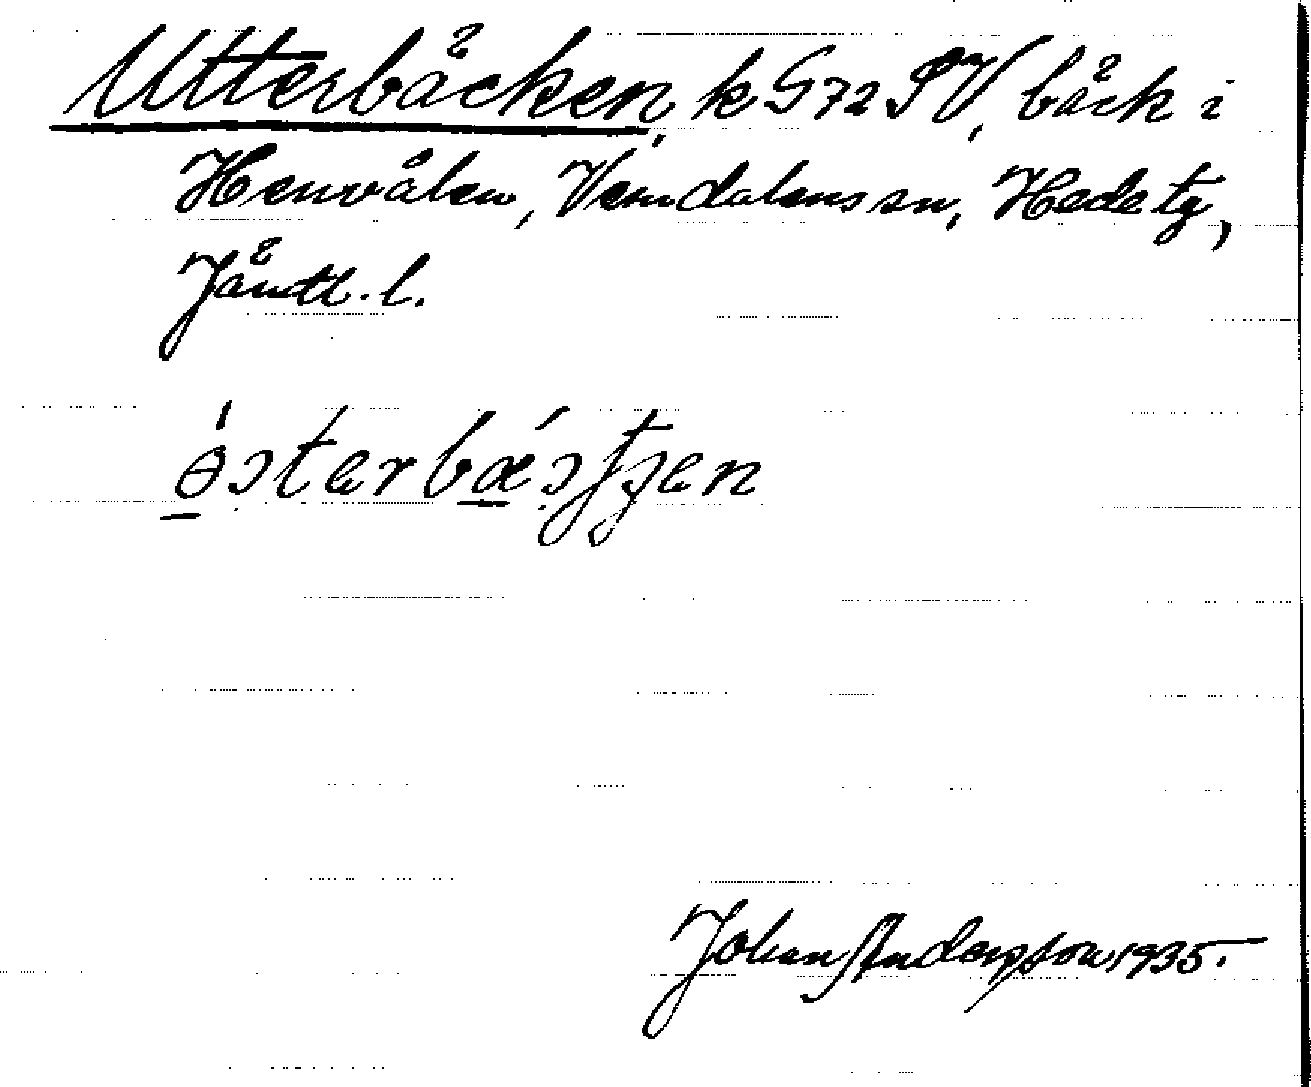 Utterbäcken, k G72 SV, bäck i
Henvålen, Vemdalens sn, Hede tg,
Jämtl. l.
Johan Andersson 1935.